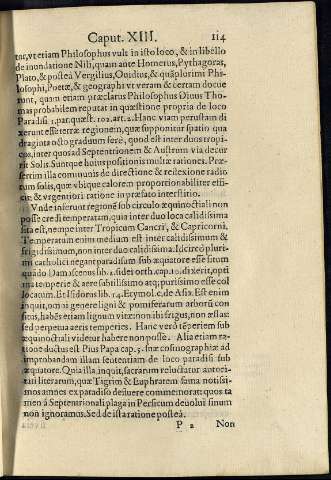 Caput. XIII. 114
tur, vt etiam Philosophus vult in isto loco, & in libello
de inundatione Nili, quam ante Homerus, Pythagoras,
Plato, & postea Vergilius, Ouidius, & quāplurimi Phi-
losophi, Poetæ, & geographi vt veram & certam docue
runt, quam etiam præclarus Philosophus Diuus Tho-
mas probabilem reputat in quæstione propria de loco
Paradisi 1. par. quæst. 102. art. 2. Hanc viam perustam di
xerunt esse terræ regionem, quæ supponitur spatio qua
draginta octo graduum ferè, quod est inter duos tropi-
cos, inter quos ad Septentrionem & Austrum via decur
rit Solis. Suntque huius positionis multæ rationes. Præ-
sertim illa communis de directione & reflexione radio
rum solis, quæ vbique calorem proportionabiliter effi-
cit & vrgentiori ratione in præfato interstitio.
Vnde inferunt regionē sub circulo æquinoctiali non
posse credi temperatam, quia inter duo loca calidissima
sita est, nempe inter Tropicum Cancri, & Capricorni,
Temperatum enim medium est inter calidissimum &
frigidissimum, non inter duo calidissima. Idcircò pluri-
mi catholici negant paradisum sub æquatore esse situm
quādo Damascenus lib. 4. fidei orth. cap. 10. dixerit, opti
ma temperie & aere subtilissimo atq; purissimo esse col
locatum. Et Isidorus lib. 14. Etymol. c. de Asia. Est enim
inquit, omni genere ligni & pomiferarum arborū con
sitis, habēs etiam lignum vitæ: non ibi frigus, non æstas:
sed perpetua aeris temperies. Hanc verò tēperiem sub
æquinoctiali videtur habere non posse. Alia etiam ra-
tione ductus est Pius Papa cap. 5. suæ cosmographiæ ad
improbandam illam sententiam de loco paradisi sub
æquatore. Quia illa inquit, sacrarum reluctatur autori-
tati literarum, quæ Tigrim & Euphratem fama notissi-
mos amnes ex paradiso defluere commemorat: quos ta
men à Septentrionali plaga in Persicum deuolui sinum
non ignoramus. Sed de ista ratione posteà.
P 2 Non